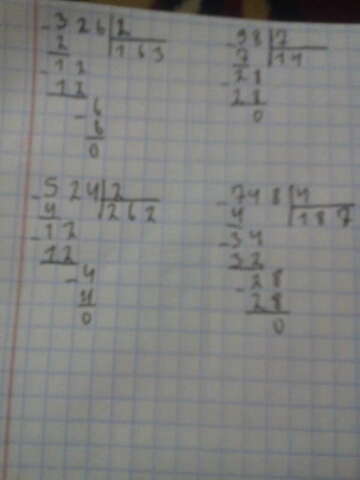 -326|2
2 |163
-12
12
-6
6
0
-98|7
7 |14
-28
28
0
-524|2
4 |262
-12
12
-4
4
0
-748|4
4 |187
-34
32
-28
28
0